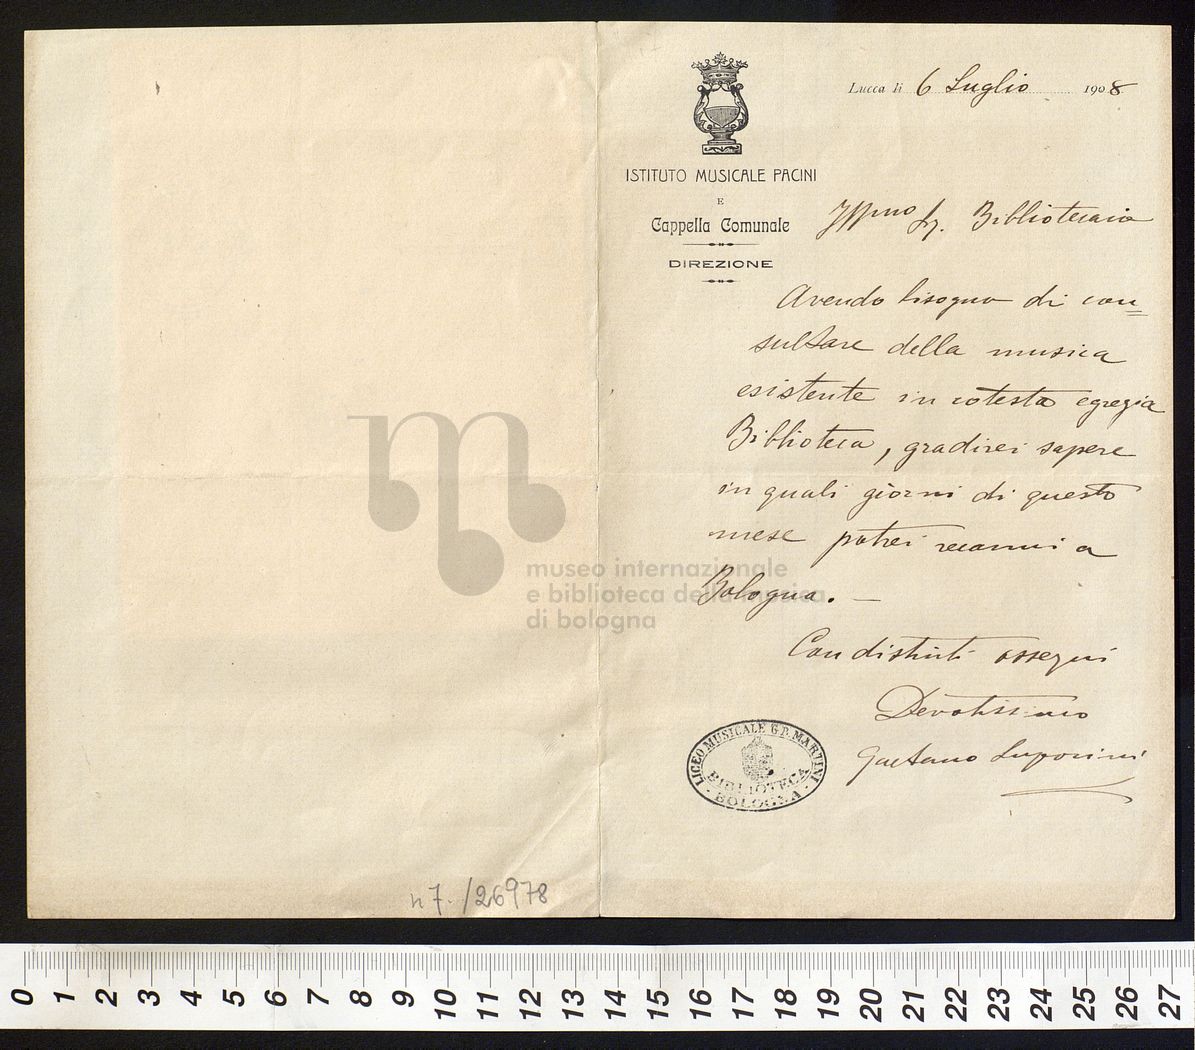 Lucca li 6 Luglio 1908
ISTITUTO MUSICALE PACINI
E
Cappella Comunale
DIREZIONE
Illmo Sg. Bibliotecario
Avendo bisogno di con=
sultare della musica
esistente in cotesta egregia
Biblioteca, gradirei sapere
in quali giorni di questo
mese potrei recarmi a
Bologna. —
Con distinti ossequi
Devotissimo
Gaetano Luporini
LICEO MUSICALE G.B. MARTINI
BIBLIOTECA
BOLOGNA
n 7. /26978
museo internazionale
e biblioteca della musica
di bologna
0 1 2 3 4 5 6 7 8 9 10 11 12 13 14 15 16 17 18 19 20 21 22 23 24 25 26 27